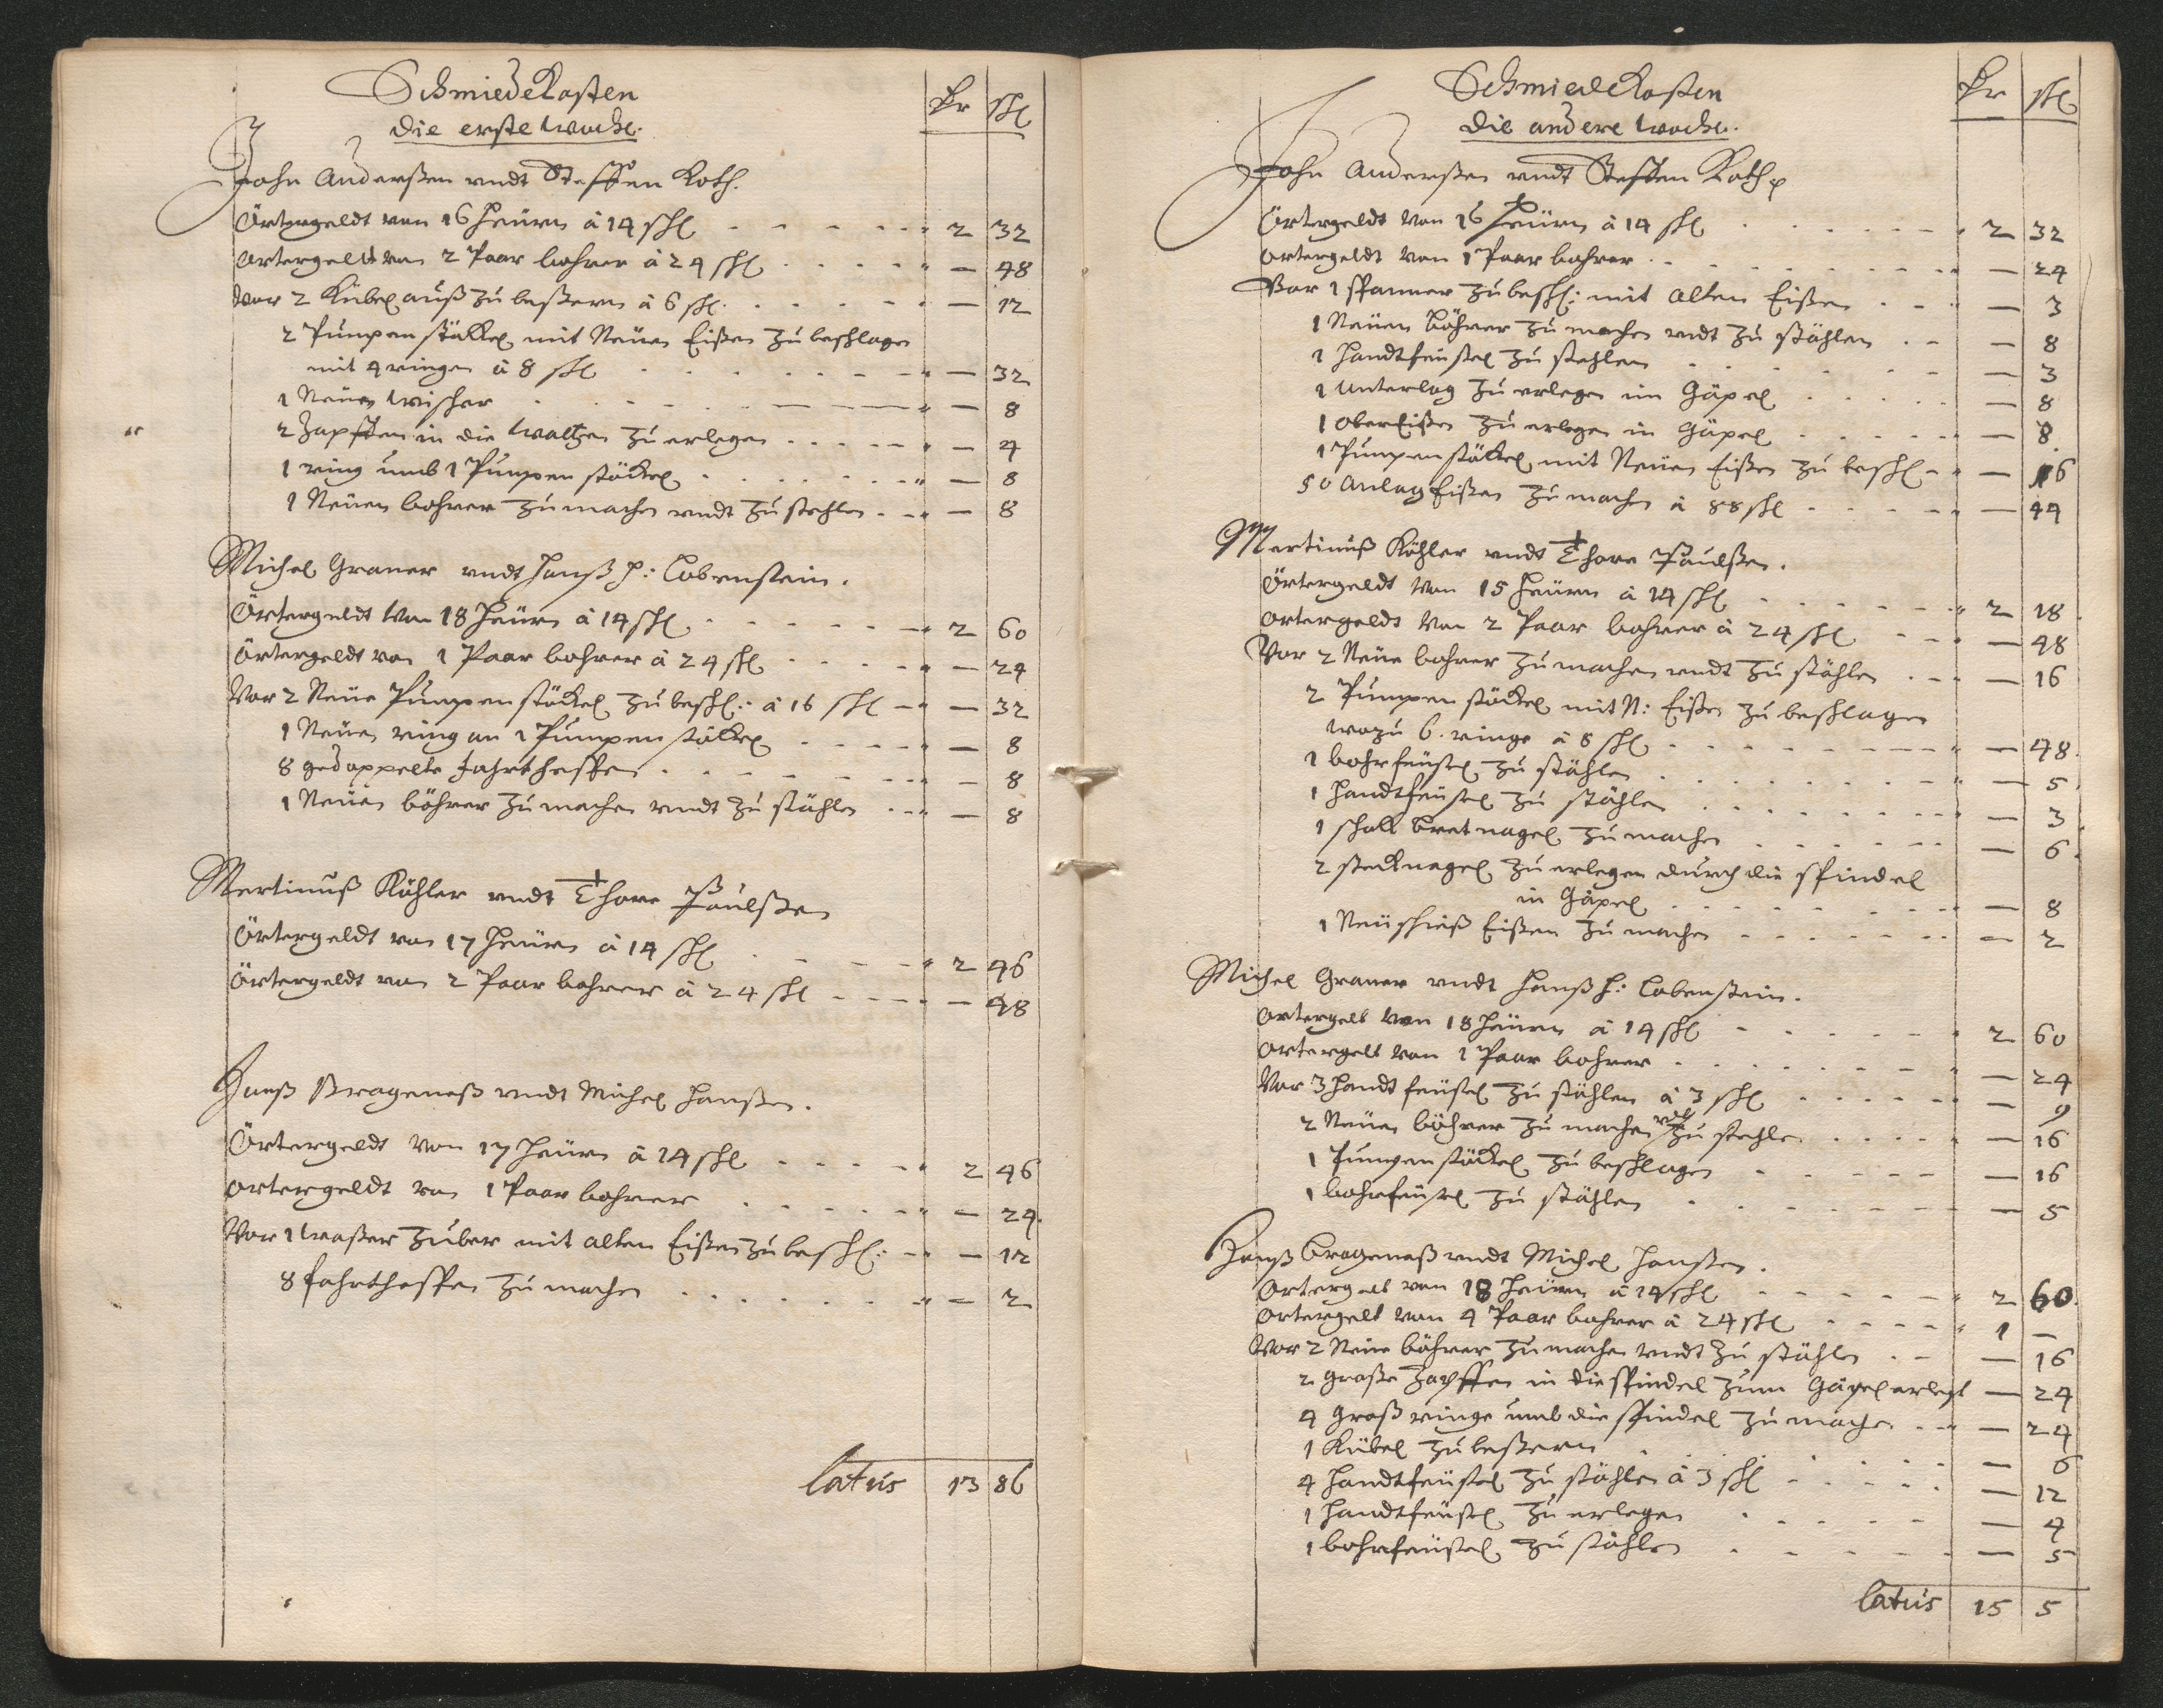 Schmiede Kosten
die erste woche.
Rr ßl
John Anderßen undt Steffen Koth.
Örtergeldt von 16 Heüern â 14 ßl 2 32
Örtergeldt von 2 Paar bohrer â 24 ßl — 48
Vor 2 Kübel auß zu beßern â 6 ßl. — 12
2 Pumpen stöckel mit Neüen Eißen zu beschlagen
mit 4 ringen â 8 ßl — 32
1 Neüen wischer — 8
2 Zapffen in die waltzen zu erlegen — 4
1 ring umb 1 Pumpen stöckel — 8
1 Neüen bohrer zu machen undt zu stehlen — 8
Michel Graner undt Hanß H: Lobenstein.
Örtergeldt von 18 Heüern â 14 ßl 2 60
Örtergeldt von 1 Paar bohrer â 24 ßl — 24
Vor 2 Neüe Pumpen stöckel zu beschl: â 16 ßl — 32
1 Neüen ring an 1 Pumpen stöckel — 8
8 gedoppelte fahrthaspen — 8
1 Neüen böhrer zu machen undt zu stählen — 8
Mertinuß Köhler undt Thore Paulßen
Örtergeldt von 17 Heüern â 14 ßl 2 46
Örtergeldt von 2 Paar bohrer â 24 ßl — 48
Hanß Brageneß undt Michel Hanßen.
Örtergeldt von 17 Heüern â 14 ßl 2 46
Örtergeldt von 1 Paar bohrer — 24.
Vor 1 waßer zuber mit alten Eißen zu beschl: — 12
8 fahrthaspen zu machen — 2
latus 13 86
Schmiede Kosten
die andere woche.
Rr ßl
John Anderßen undt Steffen Koth
Örtergeldt von 16 Heüern â 14 ßl 2 32
Örtergeldt von 1 Paar bohrer — 24
Vor 1 spanner zu beschl: mit alten Eißen — 3
1 Neüen böhrer zu machen undt zu stählen — 8
1 Handtfeüstel zu stehlen — 3
1 unterlag zu erlegen im Gäpel — 8
1 ober Eißen zu erlegen in Gäpel — 8
1 Pumpen stöckel mit Neüen Eißen zu beschl — 16
50 Anlag Eißen zu machen â 88 ßl — 44
Mertinuß Köhler undt Thore Paulßen.
Örtergeldt von 15 Heüern â 14 ßl 2 18
Örtergeldt von 2 Paar bohrer â 24 ßl — 48
Vor 2 Neüe bohrer zu machen undt zu stählen — 16
2 Pumpen stöckel mit N: Eißen zu beschlagen
wozu 6. ringe â 8 ßl — 48.
1 bohrfeüstel zu stählen — 5
1 Handtfeüstel zu stählen — 3
1 schall bret nagel zu machen — 6.
2 stecknagel zu erlegen durch die spindel
in Gäpel — 8
1 Neü schieß Eißen zu machen — 2
Michel Graner undt Hanß H: Lobenstein.
Örtergelt von 18 Heüern â 14 ßl 2 60
Örtergelt von 1 Paar bohrer — 24
Vor 3 Handt feüstel zu stählen â 3 ßl — 9
2 Neüen böhrer zu machen vndt zu stehlen — 16
1 Pumpen stöckel zu beschlagen — 16
1 bohrfeüstel zu stählen — 5
Hanß Brageneß undt Michel Hanßen.
Örtergelt von 18 Heüern â 14 ßl 2 60.
Örtergelt von 4 Paar bohrer â 24 ßl 1 —
Vor 2 Neüe böhrer zu machen undt zu stählen — 16
2 große Zapffen in die spindel zum Gäpel erlegt — 24
4 groß ringe umb die spindel zu machen — 24
1 Kübel zu beßern — 6
4 Handtfeüstel zu stählen â 3 ßl — 12
1 Handtfeüstel zu erlegen — 4
1 bohrfeüstel zu stählen — 5
latus 15 5